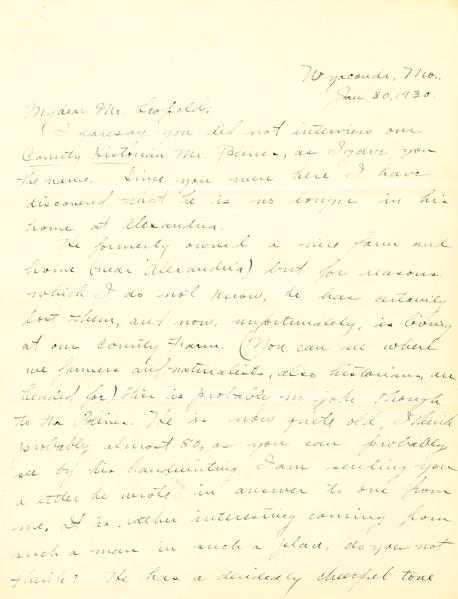 Wyaconda, Mo.
Jan 30, 1930.
My dear Mr. Leopold:
I daresay you did not interview our
County Historian Mr. Blines, as I gave you
the name. Since you were here I have
discovered that he is no longer in his
home at Alexandria.
He formerly owned a nice farm and
home (near Alexandria) but for reasons
which I do not know, he has certainly
lost them, and now, unfortunately, is living
at our County Farm. (You can see where
we farmers and naturalists, also historians, are
headed for) this is probably no joke though
to Mr. Blines. He is now quite old, I think
probably almost 80, as you can probably
see by his handwriting. I am sending you
a letter he wrote in answer to one from
me. It is rather interesting coming from
such a man in such a place, do you not
think? He has a decidedly cheerful tone